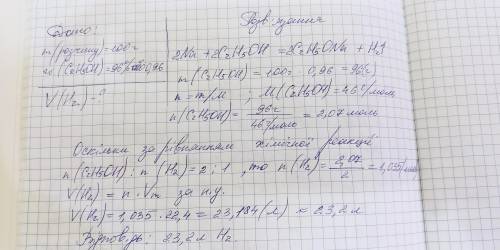 Дано:
m(розчину)=100г
w(C₂H₅OH)=96%=0,96
V(H₂)-?
Розв'язання
2Na+2C₂H₅OH=2C₂H₅ONa+H₂↑
m(C₂H₅OH)=100г·0,96=96г
n=m/M ; M(C₂H₅OH)=46г/моль
n(C₂H₅OH)=96г/46г/моль=2,07моль
Оскільки за рівнянням хімічної реакції
n(C₂H₅OH):n(H₂)=2:1, то n(H₂)=2,07/2=1,035(моль)
V(H₂)=n·Vm за н.у.
V(H₂)=1,035·22,4=23,184(л)≈23,2л
Відповідь: 23,2л H₂